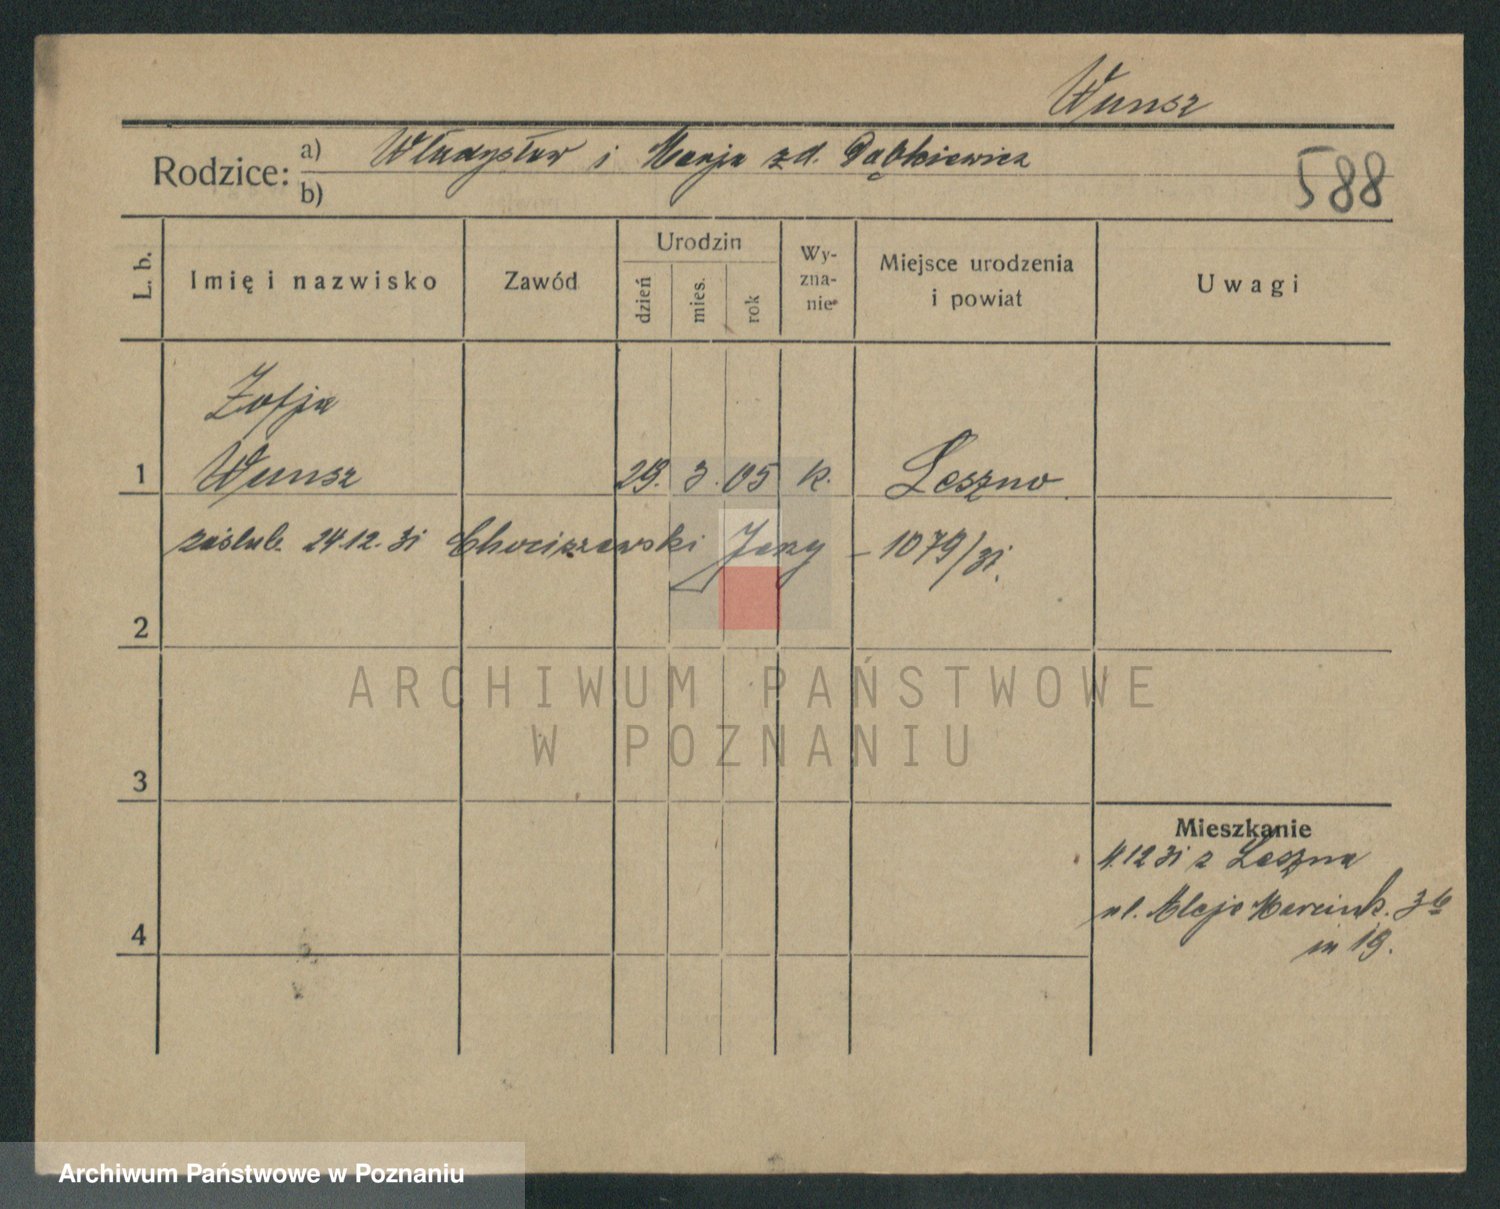 Wunsz
Rodzice: a) Władysław i Marja zd. Dąbkiewicz
b)
588
L. b. Imię i nazwisko Zawód Urodzin dzień mies. rok Wy-zna-nie Miejsce urodzenia i powiat Uwagi
Zofja
1 Wunsz 29. 3. 05 k. Leszno
zaślub. 24.12.31 Chociszewski Jerzy – 1079/31.
2
ARCHIWUM PAŃSTWOWE
W POZNANIU
3
Mieszkanie
4.12 31 z Leszna
ul. Aleje Marcink. 3b
4
m 19.
Archiwum Państwowe w Poznaniu